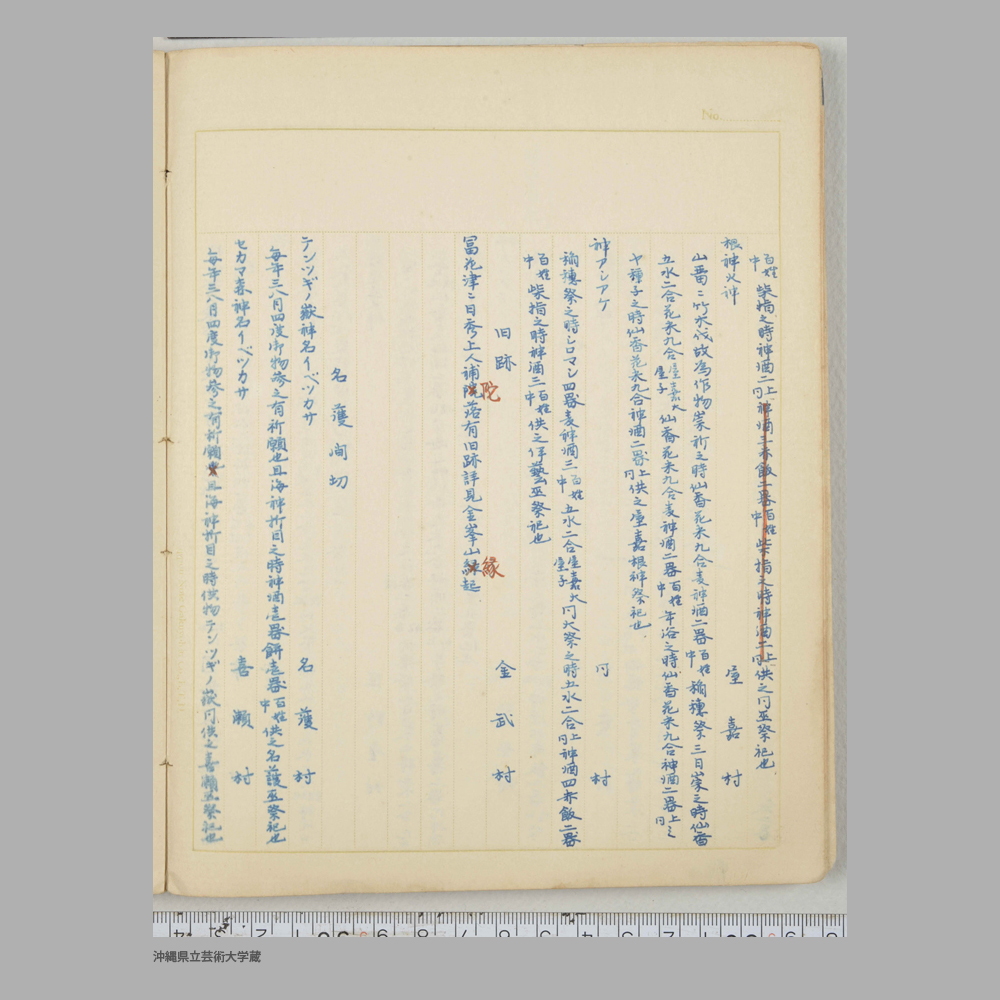 No.
百姓中柴指之時神酒二上同神酒三赤飯二器百姓中柴指之時神酒二上同供之同巫祭祀也
根神火神 屋嘉村
山留ニ竹木伐故為作物崇祈之時仙香花米九合麦神酒二器百姓中稲穂祭三日崇之時仙香
五水二合花米九合屋嘉大屋子仙香花米九合麦神酒二器百姓中年浴之時仙香花米九合神酒二器上ミ同
ヤ種子之時仙香花米九合神酒二器上同供之屋嘉根神祭祀也
神アシアケ 同村
稲穂祭之時シロマシ四器麦神酒三百姓中五水二合屋嘉大屋子同大祭之時五水二合上同神酒四赤飯二器
百姓中柴指之時神酒三百姓中供之伊藝巫祭祀也
旧跡 金武村
冨花津ニ日秀上人補陀落有旧跡詳見金峯山縁起
陀
縁
名護間切
テンツギノ嶽神名イベツカサ 名護村
毎年三八月四度御物参之有祈願也且海神折目之時神酒壱器餅壱器百姓中供之名護巫祭祀也
セカマ森神名イベツカサ 喜瀬村
毎年三八月四度御物参之有祈願也且海神折目之時供物テンツギノ嶽同供之喜瀬巫祭祀也
沖縄県立芸術大学蔵